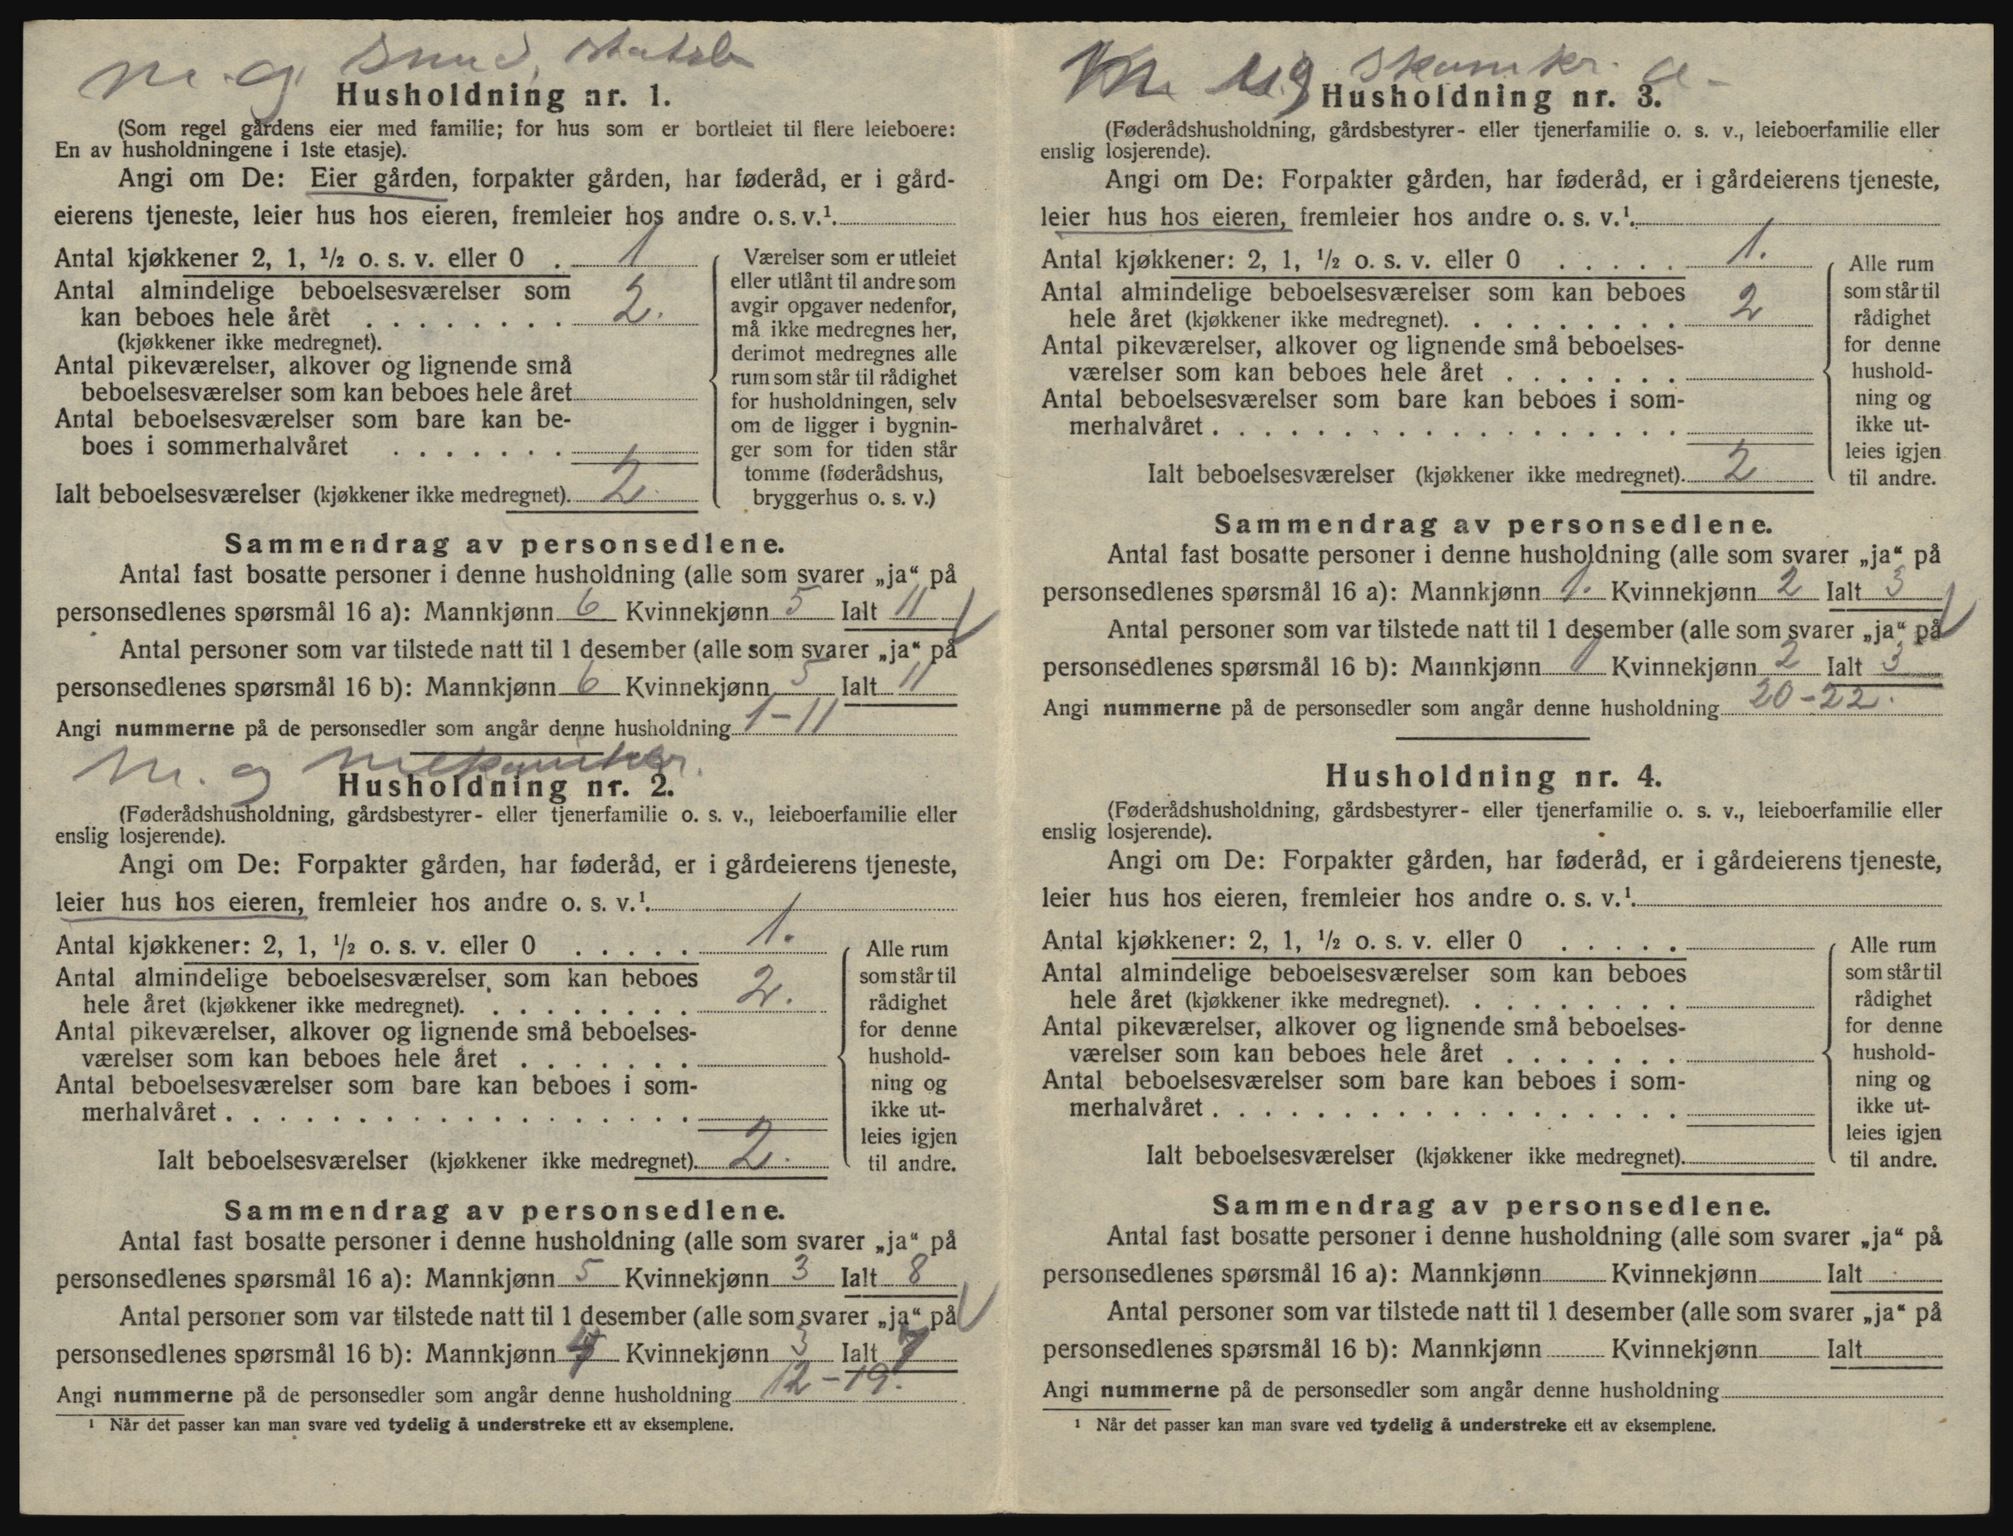 m. g. smed, statsb
Husholdning nr. 1.
(Som regel gårdens eier med familie; for hus som er bortleiet til flere leieboere:
En av husholdningene i 1ste etasje).
Angi om De: Eier gården, forpakter gården, har føderåd, er i gård-
eierens tjeneste, leier hus hos eieren, fremleier hos andre o. s. v.¹.
Antal kjøkkener 2, 1, ½ o. s. v. eller 0 . 1
Antal almindelige beboelsesværelser som
kan beboes hele året . . . . . . . . 2.
(kjøkkener ikke medregnet).
Antal pikeværelser, alkover og lignende små
beboelsesværelser som kan beboes hele året
Antal beboelsesværelser som bare kan be-
boes i sommerhalvåret . . . . . . .
Ialt beboelsesværelser (kjøkkener ikke medregnet). 2.
Værelser som er utleiet
eller utlånt til andre som
avgir opgaver nedenfor,
må ikke medregnes her,
derimot medregnes alle
rum som står til rådighet
for husholdningen, selv
om de ligger i bygnin-
ger som for tiden står
tomme (føderådshus,
bryggerhus o. s. v.)
Sammendrag av personsedlene.
Antal fast bosatte personer i denne husholdning (alle som svarer „ja“ på
personsedlenes spørsmål 16 a): Mannkjønn 6 Kvinnekjønn 5 Ialt 11
Antal personer som var tilstede natt til 1 desember (alle som svarer „ja“ på
personsedlenes spørsmål 16 b): Mannkjønn 6 Kvinnekjønn 5 Ialt 11
Angi nummerne på de personsedler som angår denne husholdning 1-11
m. g mekaniker.
Husholdning nr. 2.
(Føderådshusholdning, gårdsbestyrer- eller tjenerfamilie o. s. v., leieboerfamilie eller
enslig losjerende).
Angi om De: Forpakter gården, har føderåd, er i gårdeierens tjeneste,
leier hus hos eieren, fremleier hos andre o. s. v.¹.
Antal kjøkkener: 2, 1, ½ o. s. v. eller 0 . . . . . 1.
Antal almindelige beboelsesværelser som kan beboes
hele året (kjøkkener ikke medregnet). . . . . . . . . 2.
Antal pikeværelser, alkover og lignende små beboelses-
værelser som kan beboes hele året . . . . . . .
Antal beboelsesværelser som bare kan beboes i som-
merhalvåret . . . . . . . . . . . . . . . . . .
Ialt beboelsesværelser (kjøkkener ikke medregnet). 2.
Alle rum
som står til
rådighet
for denne
hushold-
ning og
ikke ut-
leies igjen
til andre.
Sammendrag av personsedlene.
Antal fast bosatte personer i denne husholdning (alle som svarer „ja“ på
personsedlenes spørsmål 16 a): Mannkjønn 5 Kvinnekjønn 3 Ialt 8
Antal personer som var tilstede natt til 1 desember (alle som svarer „ja“ på
personsedlenes spørsmål 16 b): Mannkjønn 4 Kvinnekjønn 3 Ialt 7
Angi nummerne på de personsedler som angår denne husholdning 12-19.
¹ Når det passer kan man svare ved tydelig å understreke ett av eksemplene.
Husholdning nr. 3.
(Føderådshusholdning, gårdsbestyrer- eller tjenerfamilie o. s. v., leieboerfamilie eller
enslig losjerende).
Angi om De: Forpakter gården, har føderåd, er i gårdeierens tjeneste,
leier hus hos eieren, fremleier hos andre o. s. v.¹.
Antal kjøkkener: 2, 1, ½ o. s. v. eller 0 . . . . . 1.
Antal almindelige beboelsesværelser som kan beboes
hele året (kjøkkener ikke medregnet). . . . . . . . . 2
Antal pikeværelser, alkover og lignende små beboelses-
værelser som kan beboes hele året . . . . . . .
Antal beboelsesværelser som bare kan beboes i som-
merhalvåret . . . . . . . . . . . . . . . . . .
Ialt beboelsesværelser (kjøkkener ikke medregnet). 2
Alle rum
som står til
rådighet
for denne
hushold-
ning og
ikke ut-
leies igjen
til andre.
Sammendrag av personsedlene.
Antal fast bosatte personer i denne husholdning (alle som svarer „ja“ på
personsedlenes spørsmål 16 a): Mannkjønn 1. Kvinnekjønn 2 Ialt 3
Antal personer som var tilstede natt til 1 desember (alle som svarer „ja“ på
personsedlenes spørsmål 16 b): Mannkjønn 1 Kvinnekjønn 2 Ialt 3
Angi nummerne på de personsedler som angår denne husholdning 20-22.
Husholdning nr. 4.
(Føderådshusholdning, gårdsbestyrer- eller tjenerfamilie o. s. v., leieboerfamilie eller
enslig losjerende).
Angi om De: Forpakter gården, har føderåd, er i gårdeierens tjeneste,
leier hus hos eieren, fremleier hos andre o. s. v.¹.
Antal kjøkkener: 2, 1, ½ o. s. v. eller 0 . . . . .
Antal almindelige beboelsesværelser som kan beboes
hele året (kjøkkener ikke medregnet). . . . . . . . .
Antal pikeværelser, alkover og lignende små beboelses-
værelser som kan beboes hele året . . . . . . .
Antal beboelsesværelser som bare kan beboes i som-
merhalvåret . . . . . . . . . . . . . . . . . .
Ialt beboelsesværelser (kjøkkener ikke medregnet).
Alle rum
som står til
rådighet
for denne
hushold-
ning og
ikke ut-
leies igjen
til andre.
Sammendrag av personsedlene.
Antal fast bosatte personer i denne husholdning (alle som svarer „ja“ på
personsedlenes spørsmål 16 a): Mannkjønn Kvinnekjønn Ialt
Antal personer som var tilstede natt til 1 desember (alle som svarer „ja“ på
personsedlenes spørsmål 16 b): Mannkjønn Kvinnekjønn Ialt
Angi nummerne på de personsedler som angår denne husholdning
¹ Når det passer kan man svare ved tydelig å understreke ett av eksemplene.